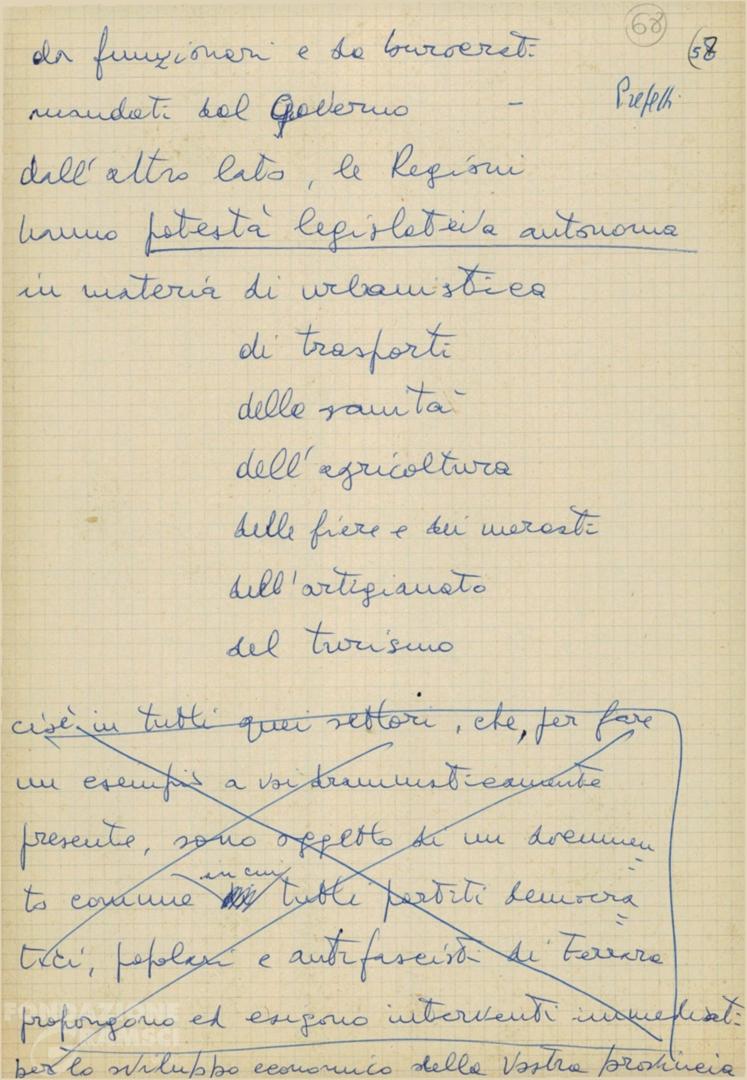 68
58
da funzionari e da burocrati
mandati dal Governo - Prefetti
dall'altro lato, le Regioni
hanno potestà legislativa autonoma
in materia di urbanistica
di trasporti
della sanità
dell'agricoltura
delle fiere e dei mercati
dell'artigianato
del turismo
cioè in tutti quei settori, che, per fare
un esempio a voi drammaticamente
presente, sono oggetto di un documen=
to comune in cui tutti partiti democra=
tici, popolari e antifascisti di Ferrara
propongono ed esigono interventi immediati
per lo sviluppo economico della Vostra provincia
FONDAZIONE
GRAMSCI